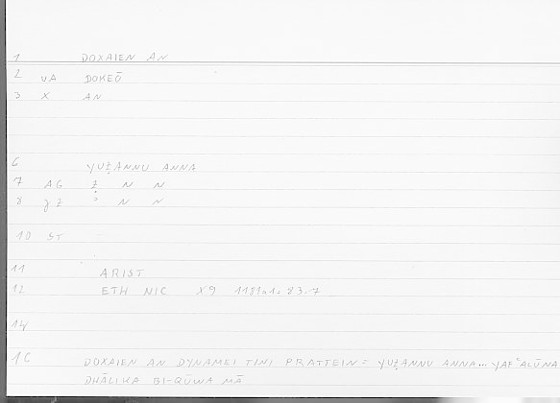 1 DOXAIEN AN
2 VA DOKEŌ
3 X AN
6 YUẒANNU ANNA
7 AG Ẓ N N
8 gz N N
10 ST
11 ARIST
12 ETH NIC X9
14
1C DOXAIEN AN DYNAMEI TINI PRATTEIN = YUẒANNU ANNA... YAFʿALŪNA
DHĀLIKA BI-QŪWA MĀ